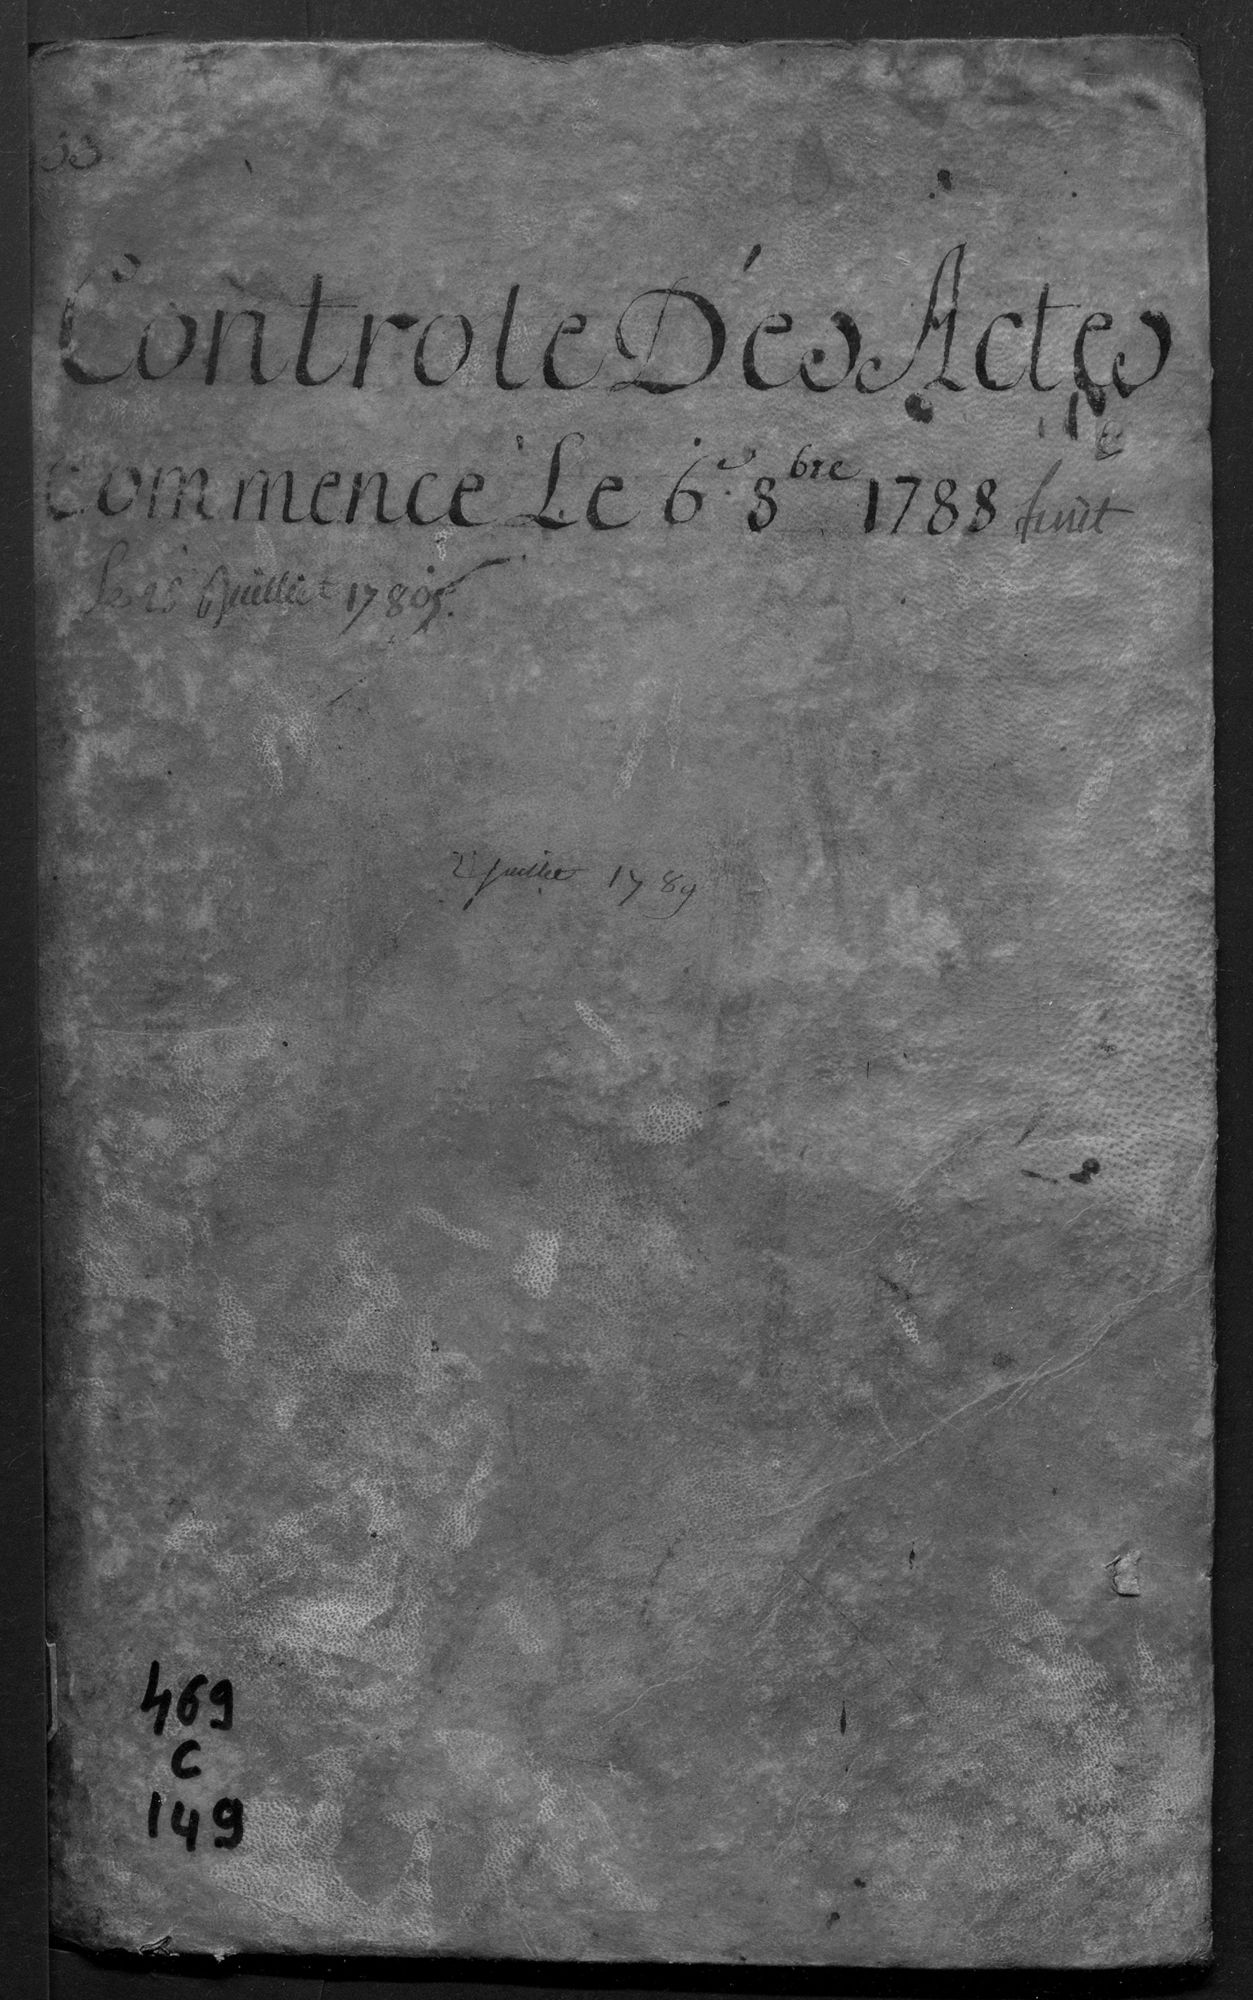 33
Controle Dés Actes
commencé Le 6. 8bre 1788 finit
Le juillet 1789.
2 juillet 1789
469
C
149